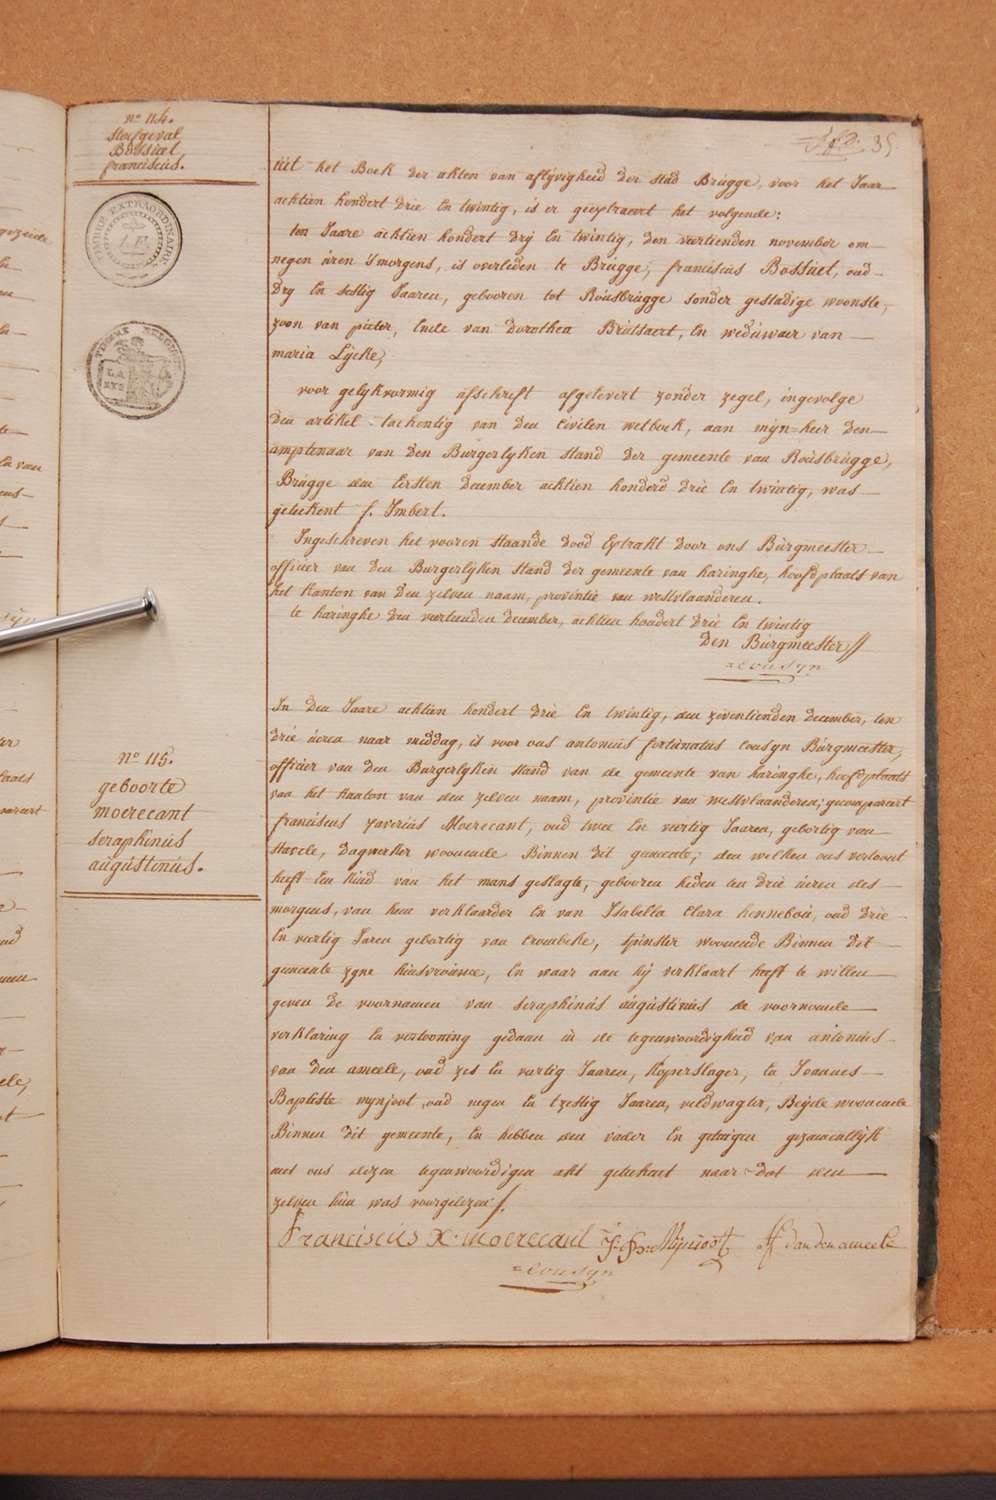 nº 114.
sterfgeval
Bossuet
franciscus.
35
uit het Boek der akten van aflijvigheid der stad Brugge, voor het Jaar
achtien hondert drie En twintig, is er geëxtraeert het volgende:
ten Jaare achtien hondert drij En twintig, den veertienden november om
negen uren s'morgens, is overleden te Brugge, franciscus Bossuet, oud
Dry En sestig Jaaren, gebooren tot Rousbrugge sonder gestadige woonste,
zoon van pieter, Ende van Dorothea Brutsaert, En weduwaer van
maria Lycke,
voor gelykvormig afschrift afgelevert zonder zegel, ingevolge
den artikel tachentig van den Civilen wetboek, aan mijn=heer den
amptenaar van den Burgerlyken stand der gemeente van Rousbrugge,
Brugge den Eersten December achtien honderd drie En twintig, was
geteekent f. Imbert.
Ingeschreven het vooren staande dood Extrakt door ons Burgmeester
officier van den Burgerlyken stand der gemeente van haringhe, hoofdplaats van
het kanton van den zelven naam, provintie van westvlaanderen.
te haringhe den veertienden december, achtien hondert drie En twintig
Den Burgmeester
Cousyn
nº 115.
geboorte
moerecant
seraphinus
augustinus.
In den Jaare achtien hondert drie En twintig, den zeventienden december, ten
drie ueren naar middag, is voor ons antonius fortunatus Cousyn Burgmeester,
officier van den Burgerlyken stand van de gemeente van haringhe, hoofdplaats
van het kanton van den zelven naam, provintie van westvlaanderen; gecompareert
franciscus xaverius Moerecant, oud twee En veertig Jaaren, geboortig van
stavele, Dagwerker woonende Binnen dit gemeente, den welken ons vertoont
heeft Een kind van het mans geslagte, gebooren heden ten drie ueren des
morgens, van hem verklaarder En van Isabella Clara hennebou, oud drie
En veertig Jaren gebortig van Crombeke, spinster woonende Binnen dit
gemeente zyne huisvrouwe, En waar aan hij verklaart heeft te willen
geven de voornamen van seraphinus augustinus de voornoemde
verklaring En vertooning gedaan in de tegenwoordigheid van antonius
van den ameele, oud zes En veertig Jaaren, koperslager, En Joannes
Baptiste mynjoot, oud negen En tzestig Jaaren, veldwagter, Beijde woonende
Binnen dit gemeente, En hebben den vader En getuigen gezamentlijk
met ons dezen tegenwoordigen akt geteekent naar dat den
zelven hun was voorgelezen.
Franciscus X. moerecant J. Bte Mijnjoot A f vandenameele
Cousyn